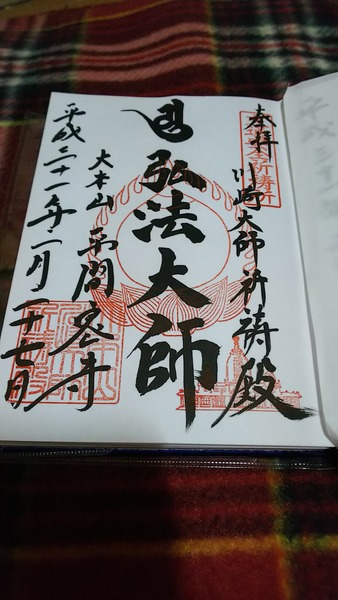 奉拝
川崎大師 祈禱殿
弘法大師
大本山 平間寺
平成三十一年一月二十七日